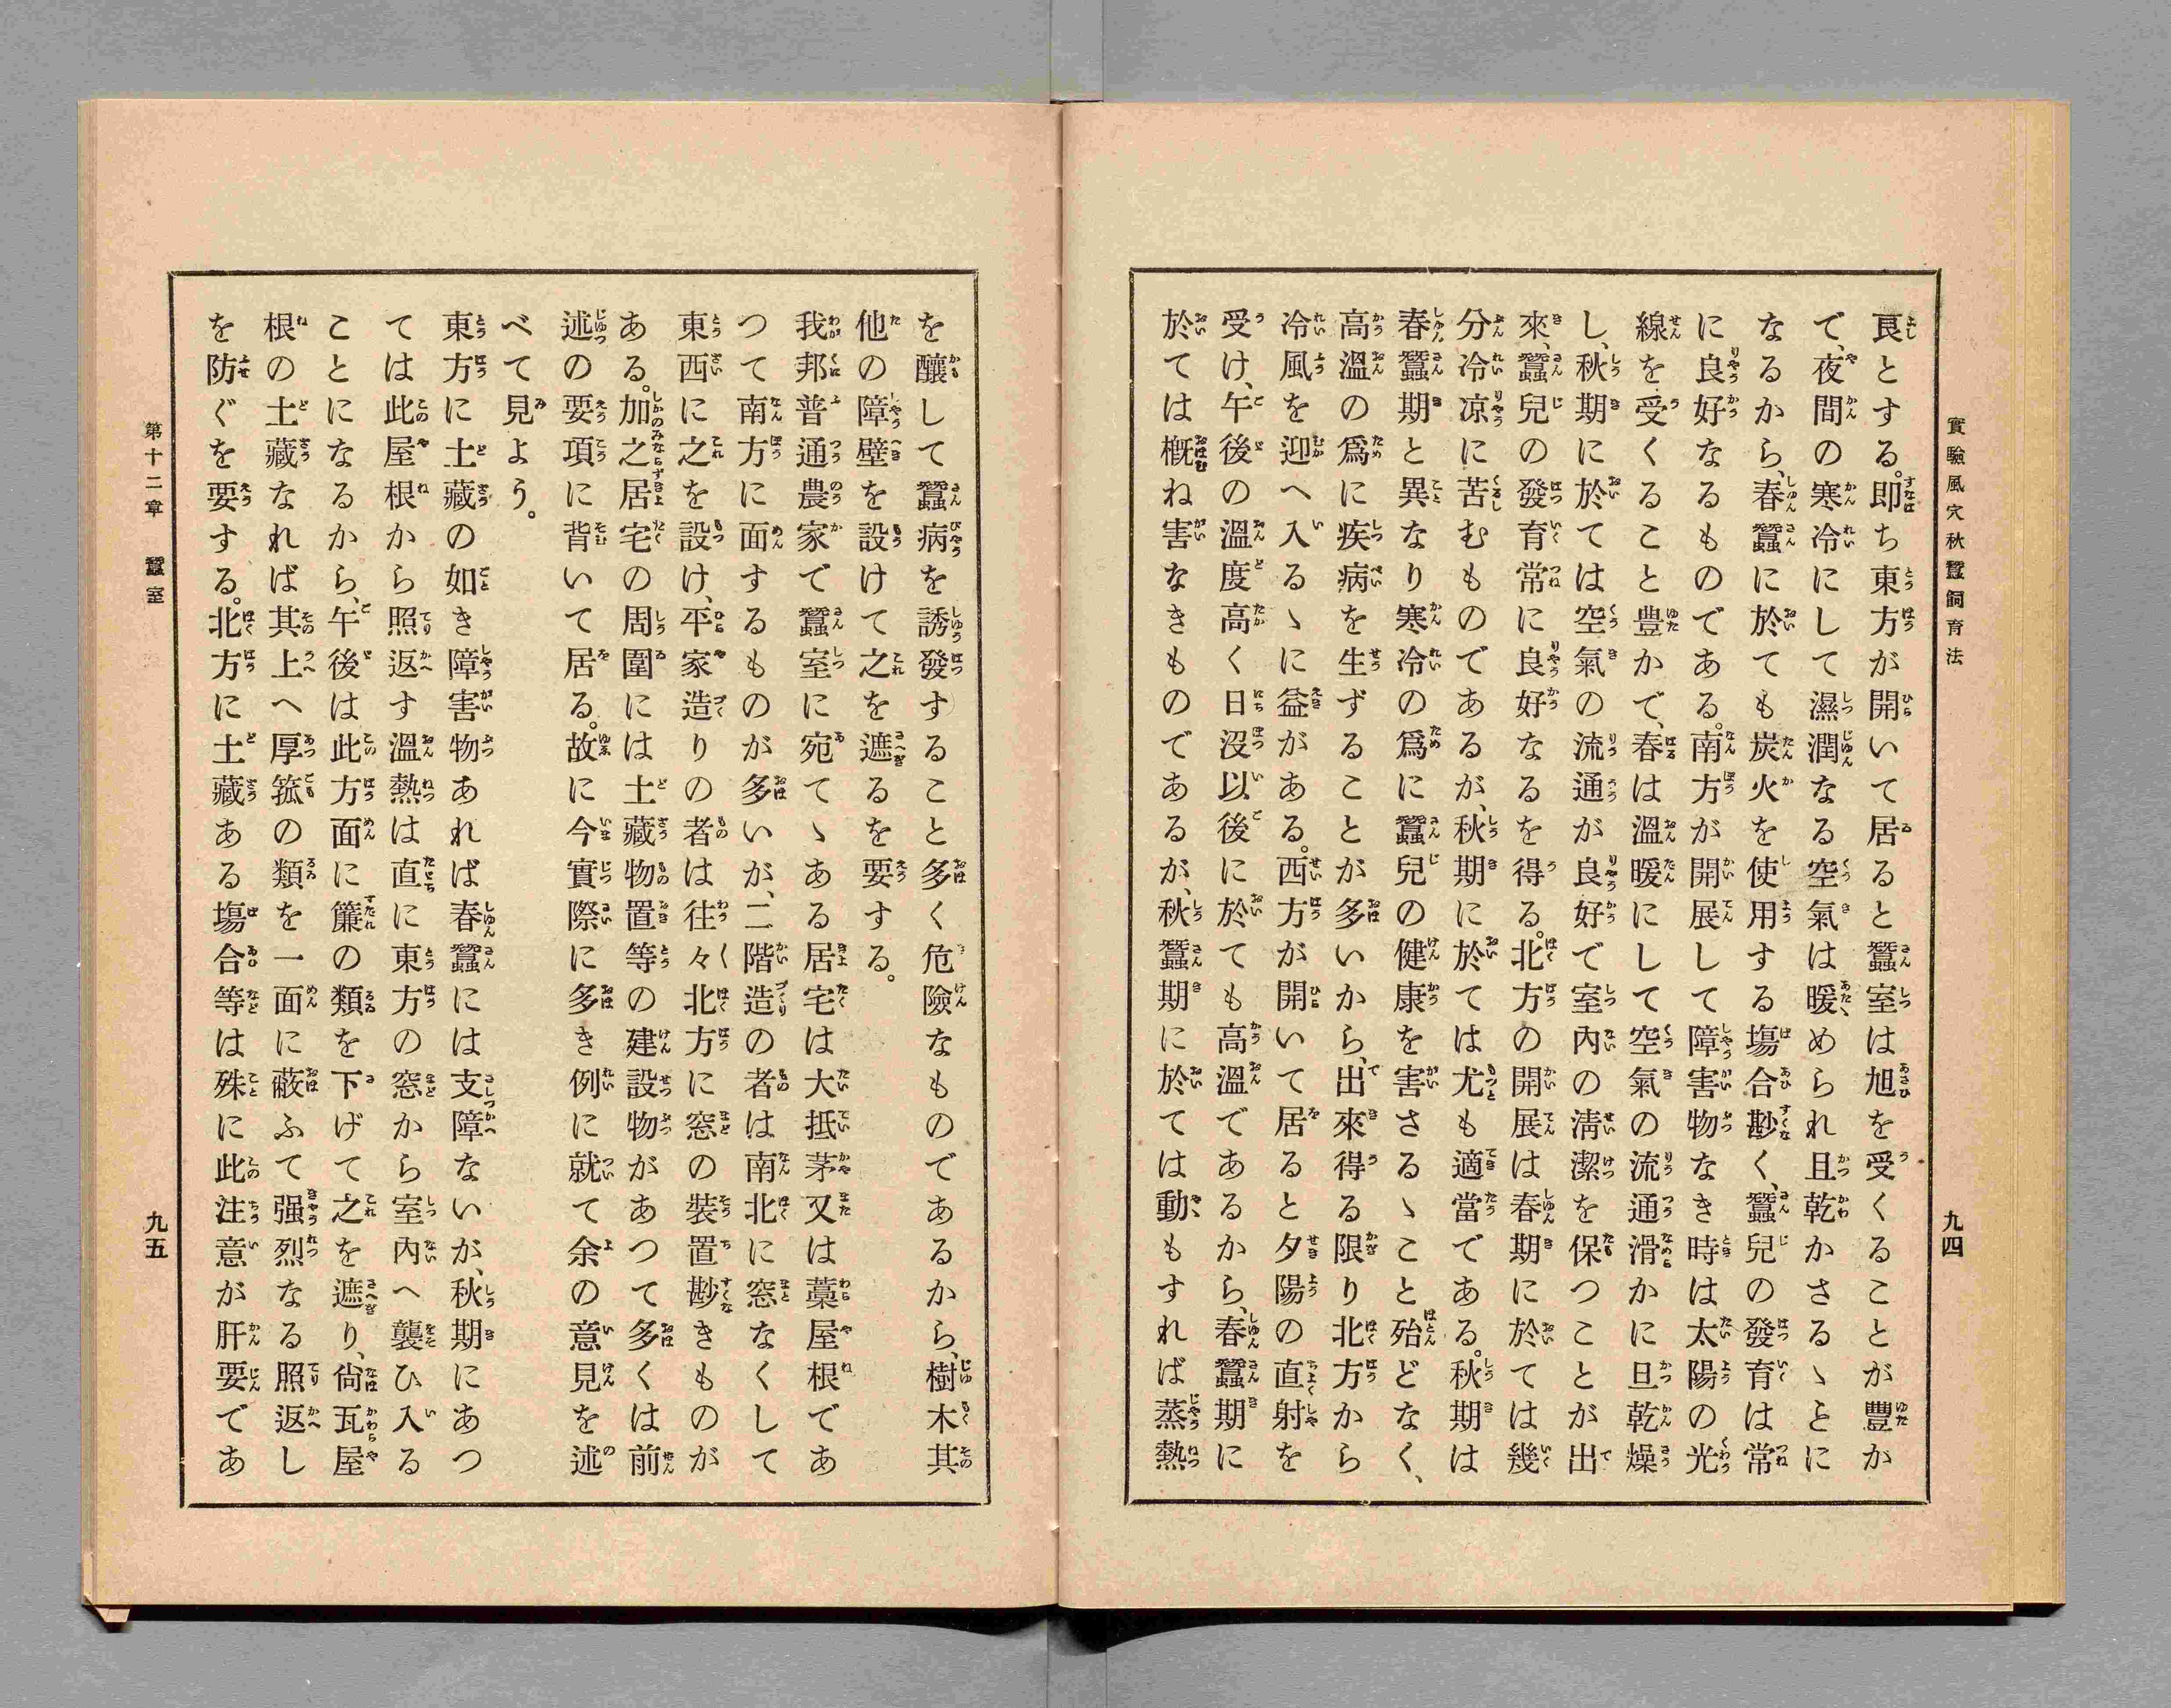 實驗風穴秋蠶飼育法
九四
良とする。即ち東方が開いて居ると蠶室は旭を受くることが豐か
で、夜間の寒冷にして濕潤なる空氣は暖められ且つ乾かさるゝとに
なるから、春蠶に於ても炭火を使用する塲合尠く、蠶兒の發育は常
に良好なるものである。南方が開展して障害物なき時は太陽の光
線を受くること豐かで、春は溫暖にして空氣の流通滑かに且乾燥
し、秋期に於ては空氣の流通が良好で室內の淸潔を保つことが出
來、蠶兒の發育常に良好なるを得る。北方の開展は春期に於ては幾
分冷凉に苦むものであるが、秋期に於ては尤も適當である。秋期は
春蠶期と異なり寒冷の爲に蠶兒の健康を害さるゝこと殆どなく、
高溫の爲に疾病を生ずることが多いから、出來得る限り北方から
冷風を迎へ入るゝに益がある。西方が開いて居ると夕陽の直射を
受け、午後の溫度高く日沒以後に於ても高溫であるから、春蠶期に
於ては槪ね害なきものであるが、秋蠶期に於ては動もすれば蒸熱
を釀して蠶病を誘發すること多く危險なものであるから、樹木其
他の障壁を設けて之を遮るを要する。
我邦普通農家で蠶室に宛てゝある居宅は大抵茅又は藁屋根であ
つて南方に面するものが多いが、二階造の者は南北に窓なくして
東西に之を設け、平家造りの者は往々北方に窓の裝置尠きものが
ある。加之居宅の周圍には土藏物置等の建設物があつて多くは前
述の要項に背いて居る。故に今實際に多き例に就て余の意見を述
べて見よう。
東方に土藏の如き障害物あれば春蠶には支障ないが、秋期にあつ
ては此屋根から照返す溫熱は直に東方の窓から室內へ襲ひ入る
ことになるから、午後は此方面に簾の類を下げて之を遮り、尙瓦屋
根の土藏なれば其上へ厚菰の類を一面に蔽ふて强烈なる照返し
を防ぐを要する。北方に土藏ある塲合等は殊に此注意が肝要であ
第十二章　蠶室
九五